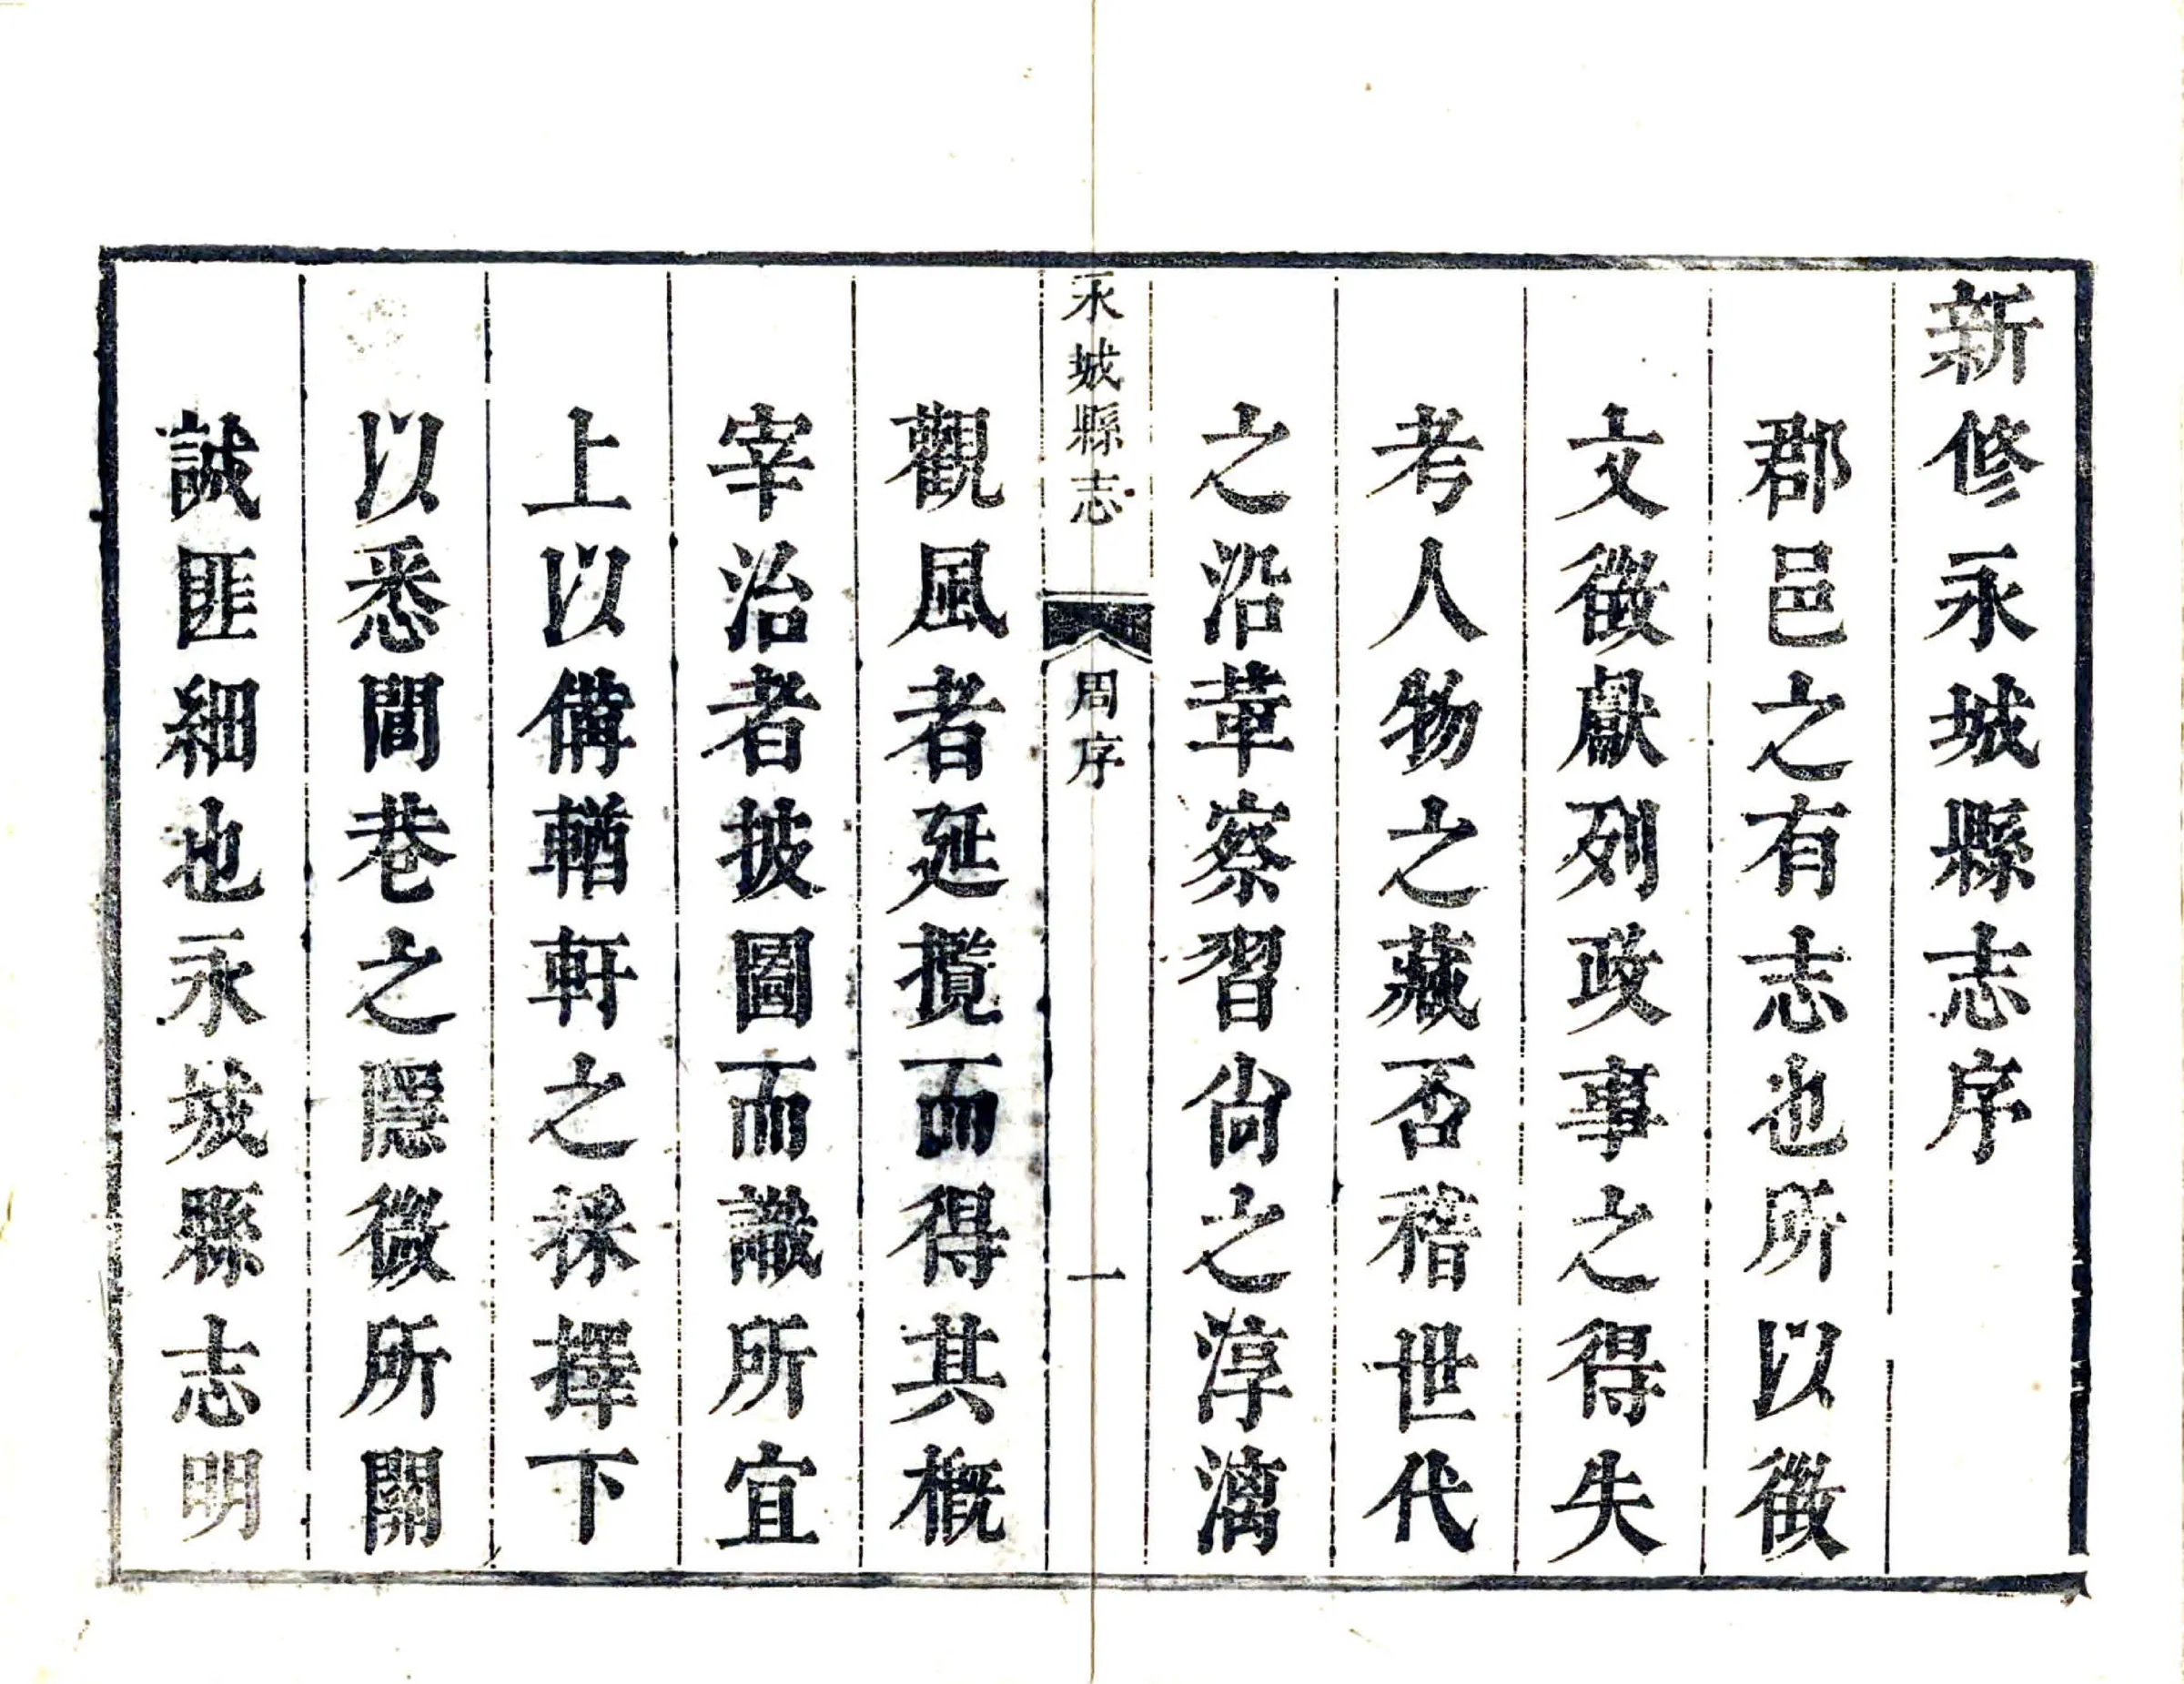 新修永城縣志序
郡邑之有志也所以徵
文徵獻列政事之得失
考人物之藏否稽世代
之沿革察習尙之淳漓
永城縣志
周序
一
觀風者延攬而得其概
宰治者披圖而識所宜
上以備輶軒之採擇下
以悉閭巷之隱微所關
誠匪細也永城縣志明